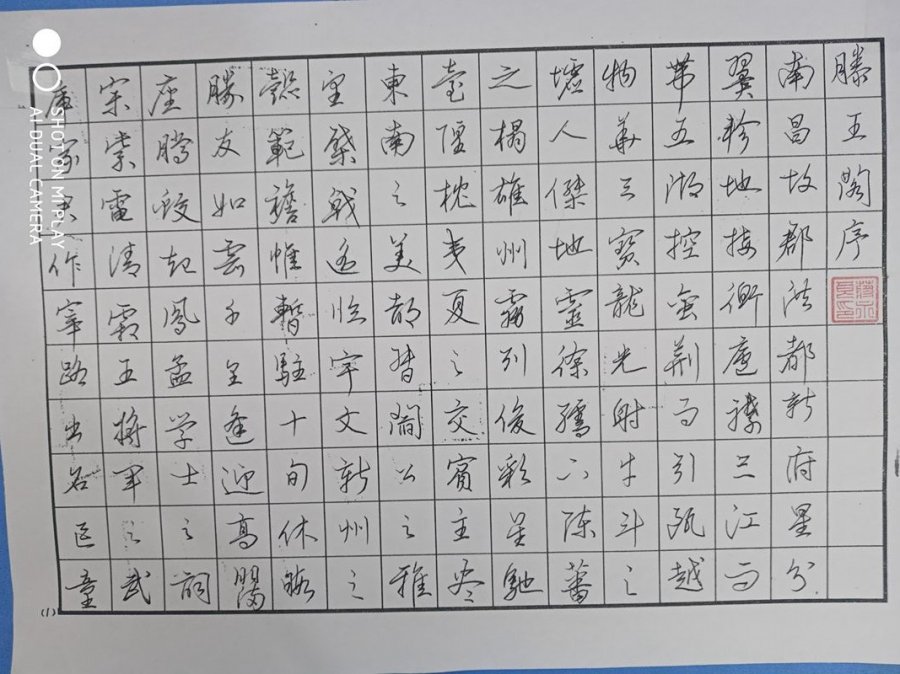 滕王閣序
南昌故郡洪都新府星分
翼軫地接衡廬襟三江而
帶五湖控蛮荆而引甌越
物華天寶龍光射牛斗之
墟人傑地靈徐孺下陳蕃
之榻雄州霧列俊彩星馳
臺隍枕夷夏之交賓主尽
東南之美都督閻公之雅
望棨戟遥临宇文新州之
懿範襜帷暫駐十旬休暇
勝友如雲千里逢迎高朋滿
座腾蛟起鳳孟学士之詞
宗紫電清霜王將軍之武
庫家君作宰路出名區童
(1)
SHOT ON MI PLAY
AI DUAL CAMERA